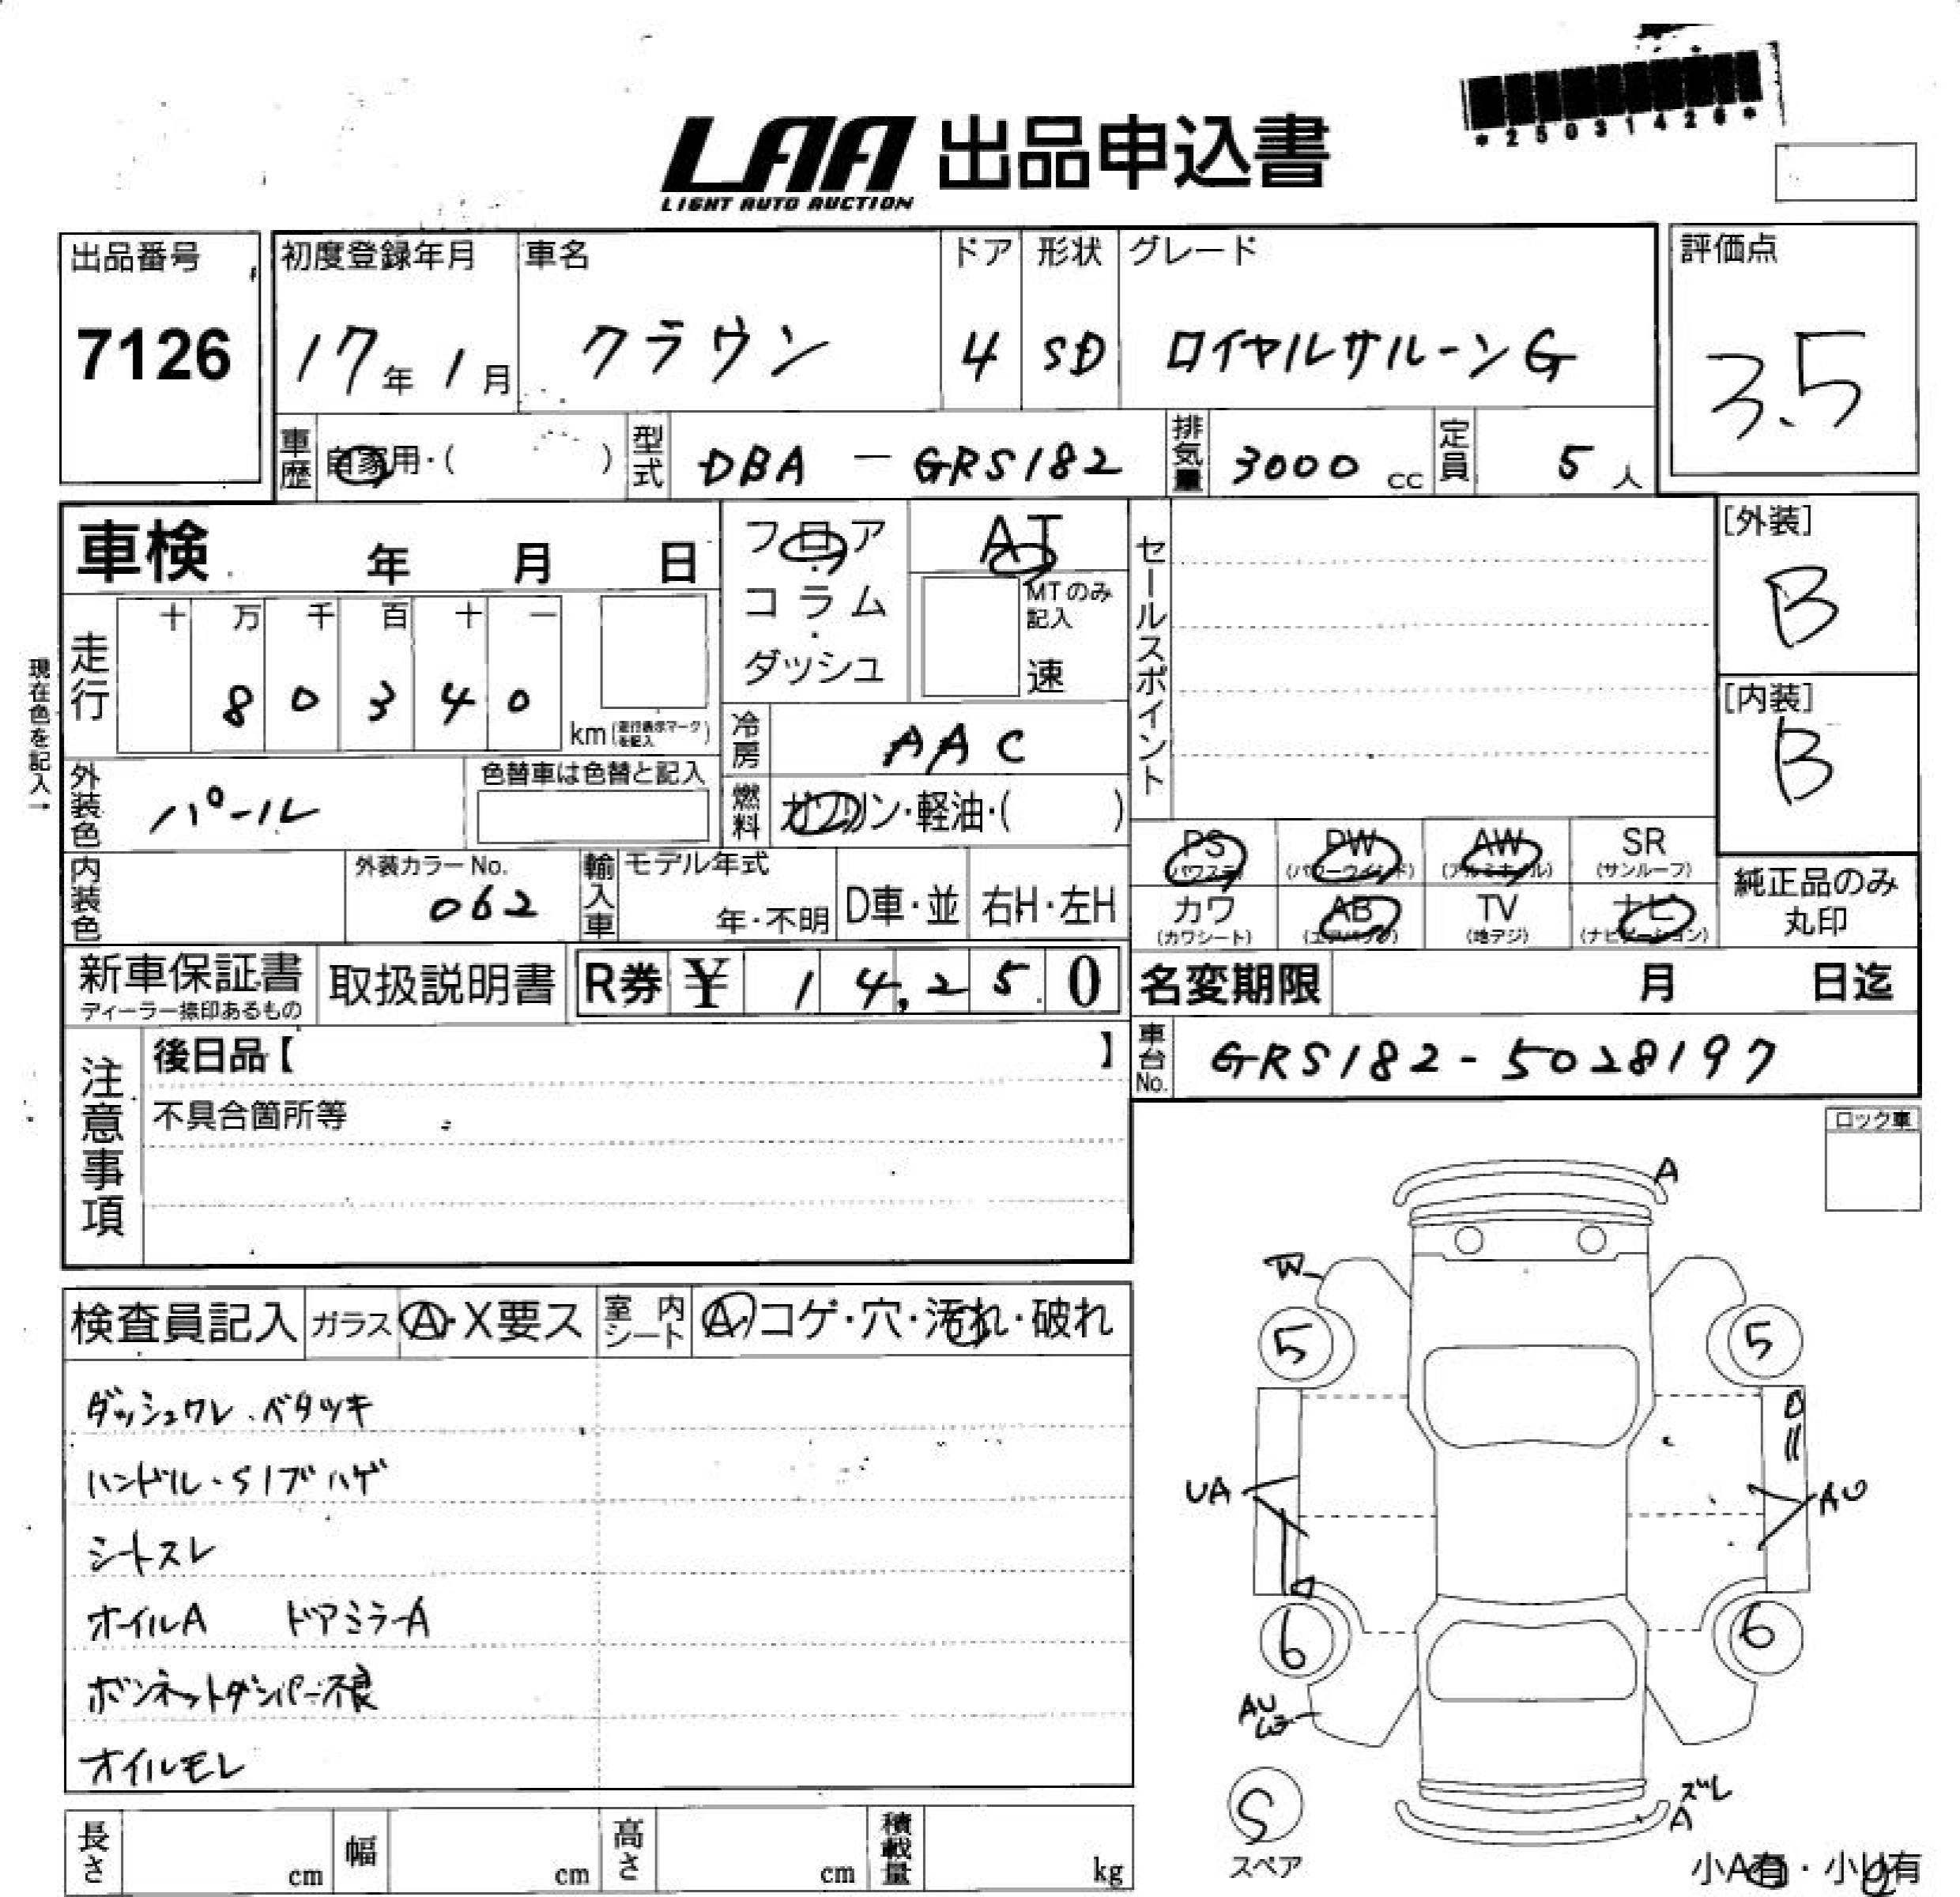 *25031426*
LAA 出品申込書
LIGHT AUTO AUCTION
出品番号
7126
初度登録年月
17年 1月
車名
クラウン
ドア
4
形状
SD
グレード
ロイヤルサルーンG
評価点
3.5
車歴 自家用・( )
型式 DBA - GRS182
排気量 3000 cc
定員 5 人
車検 年 月 日
フロア
コラム
・
ダッシュ
AT
MTのみ
記入
速
セールスポイント
[外装]
B
[内装]
B
現在色を記入→
走行
十 万 千 百 十 一
8 0 3 4 0
km(走行表示マークを記入)
冷房 AAC
外装色 パール
色替車は色替と記入
燃料 ガソリン・軽油・( )
PS (パワステ)
PW (パワーウインド)
AW (アルミホイル)
SR (サンルーフ)
カワ (カワシート)
AB (エアバッグ)
TV (地デジ)
ナビ (ナビゲーション)
純正品のみ
丸印
内装色
外装カラーNo.
062
輸入車
モデル年式
年・不明
D車・並
右H・左H
新車保証書
ディーラー捺印あるもの
取扱説明書
R券 ¥ 14,250
名変期限 月 日迄
車台No. GRS182-5028197
注意事項
後日品【 】
不具合箇所等
ロック車
検査員記入
ガラス A・X要ス
室内シート A・コゲ・穴・汚れ・破れ
ダッシュワレ・ベタツキ
ハンドル・S1ブハゲ
シートスレ
オイルA ドアミラーA
ボンネットダンパー不良
オイルモレ
A
W
5
5
UA
AU
6
6
AU
S
スペア
ズレ
A
小A有・小U有
長さ cm
幅 cm
高さ cm
積載量 kg